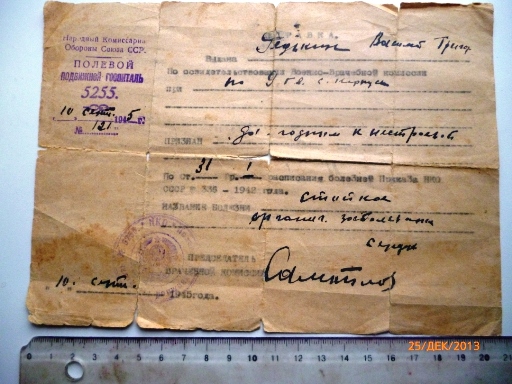 Народный Комиссариат
Обороны Союза ССР.
ПОЛЕВОЙ
ПОДВИЖНОЙ ГОСПИТАЛЬ
5255.
"10" сент. 1945 г.
№ 121
СПРАВКА.
Выдана Василий Григор
По освидетельствовании Военно-Врачебной комиссии
при по 9 Гв. с. корпуса
ПРИЗНАН годным к нестроевой
По ст. 31 гр. 1 расписания болезней Приказа НКО
СССР № 336 - 1942 года.
НАЗВАНИЕ БОЛЕЗНИ стойкое
органич. заболевание
сердца
ПРЕДСЕДАТЕЛЬ
ВРАЧЕБНОЙ КОМИССИИ
10. сент. 1945года.
25/ДЕК/2013
1 2 3 4 5 6 7 8 9 10 11 12 13 14 15 16 17 18 19 20 21